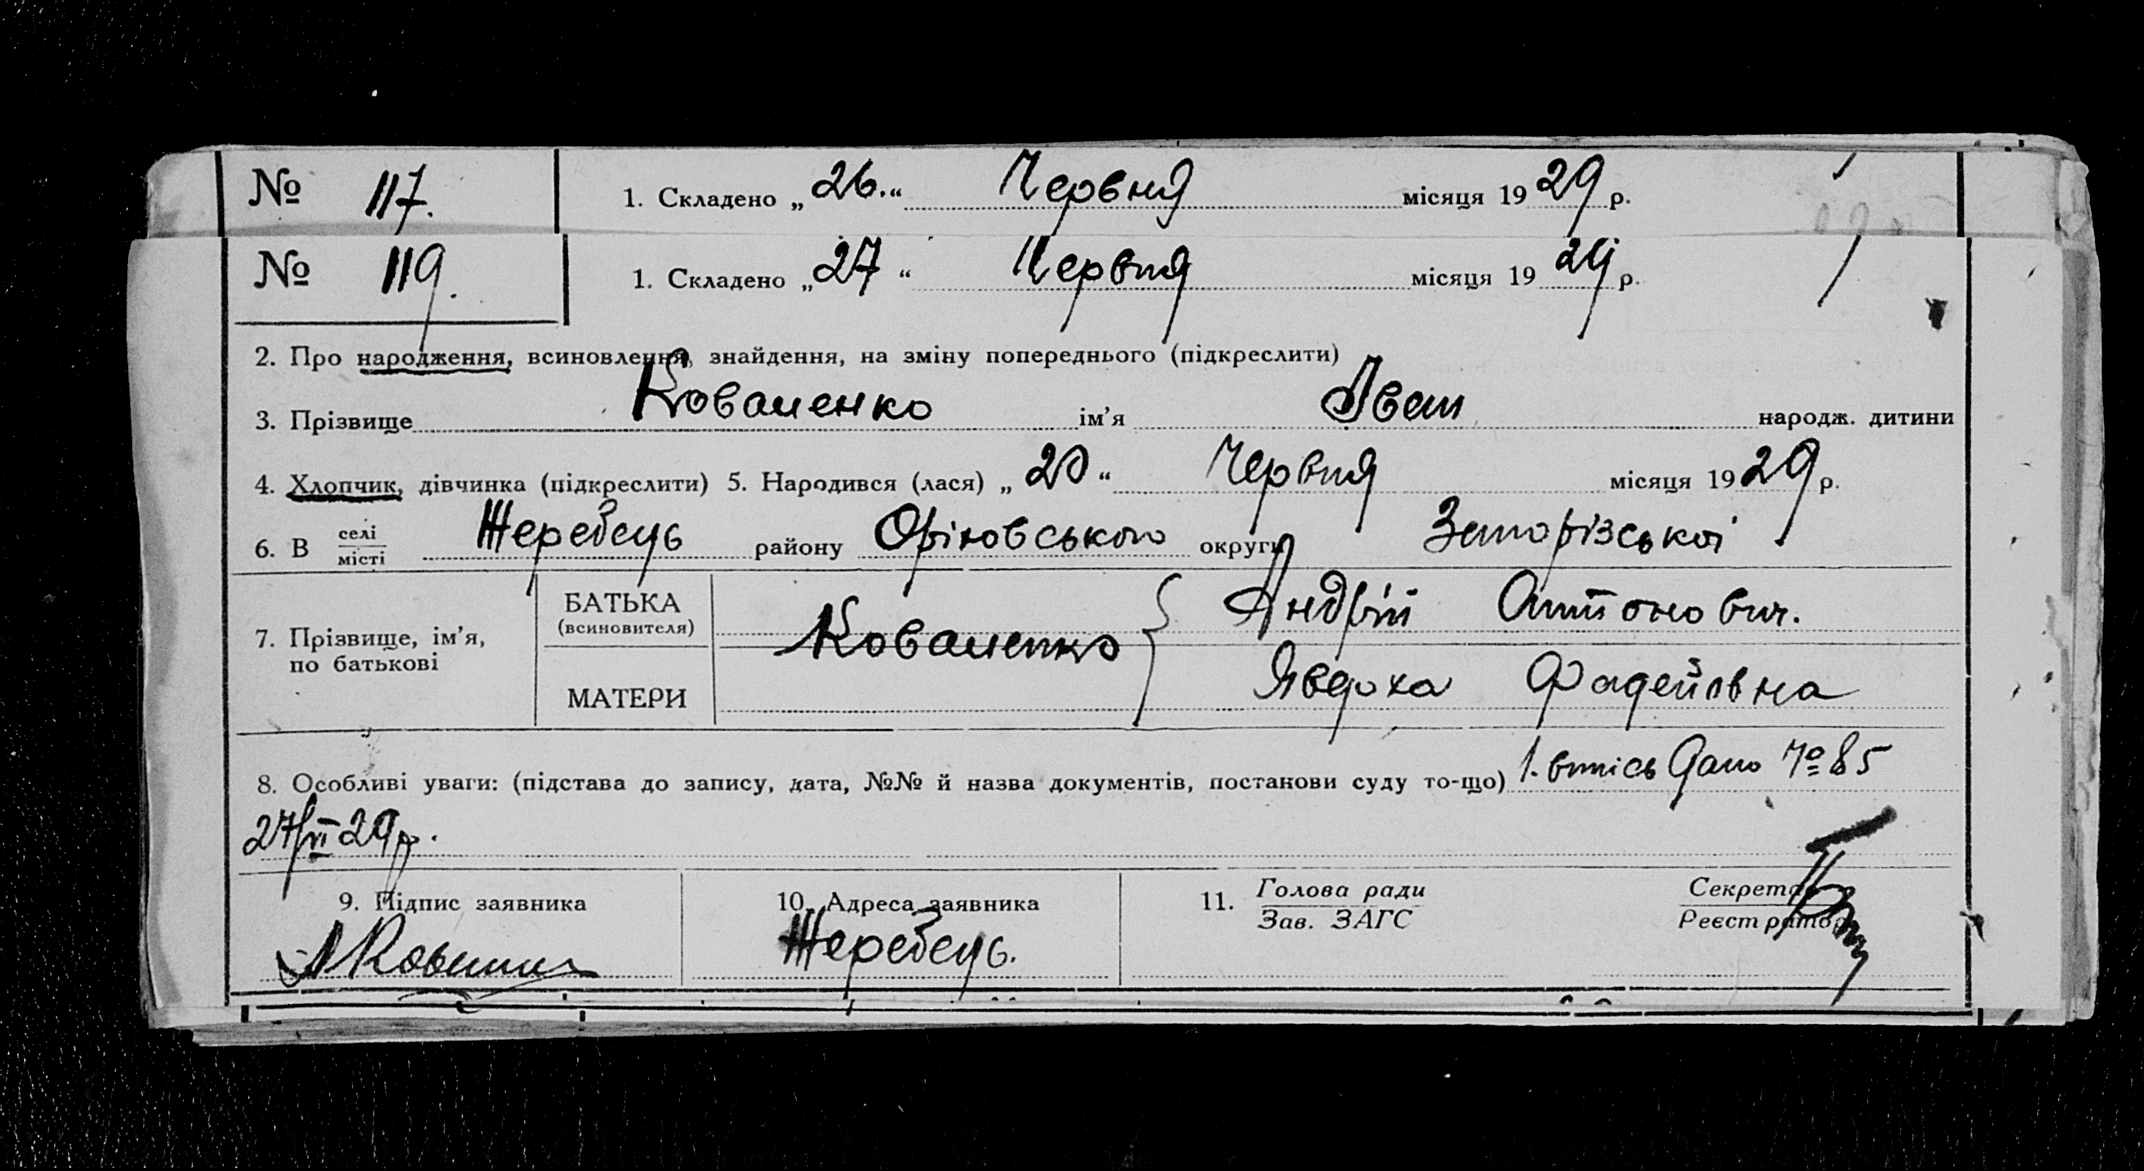 № 117. 1. Складено „26.“ Червня місяця 1929 р.
№ 119. 1. Складено „27“ Червня місяця 1929 р.
2. Про народження, всиновлення, знайдення, на зміну попереднього (підкреслити)
3. Прізвище Коваленко ім’я Іван народж. дитини
4. Хлопчик, дівчинка (підкреслити) 5. Народився (лася) „20“ Червня місяця 1929 р.
6. В селі місті Жеребець району Оріховського округи Запорізської
7. Прізвище, ім’я, по батькові
БАТЬКА (всиновителя)
МАТЕРИ
Коваленко
Андрій Антонович.
Явдоха Фадейовна
8. Особливі уваги: (підстава до запису, дата, №№ й назва документів, постанови суду то-що) 1. випись Дано № 85
27/VI 29 р.
9. Підпис заявника 10. Адреса заявника 11. Голова ради Секретар
Зав. ЗАГС Реєстратор
Жеребець.